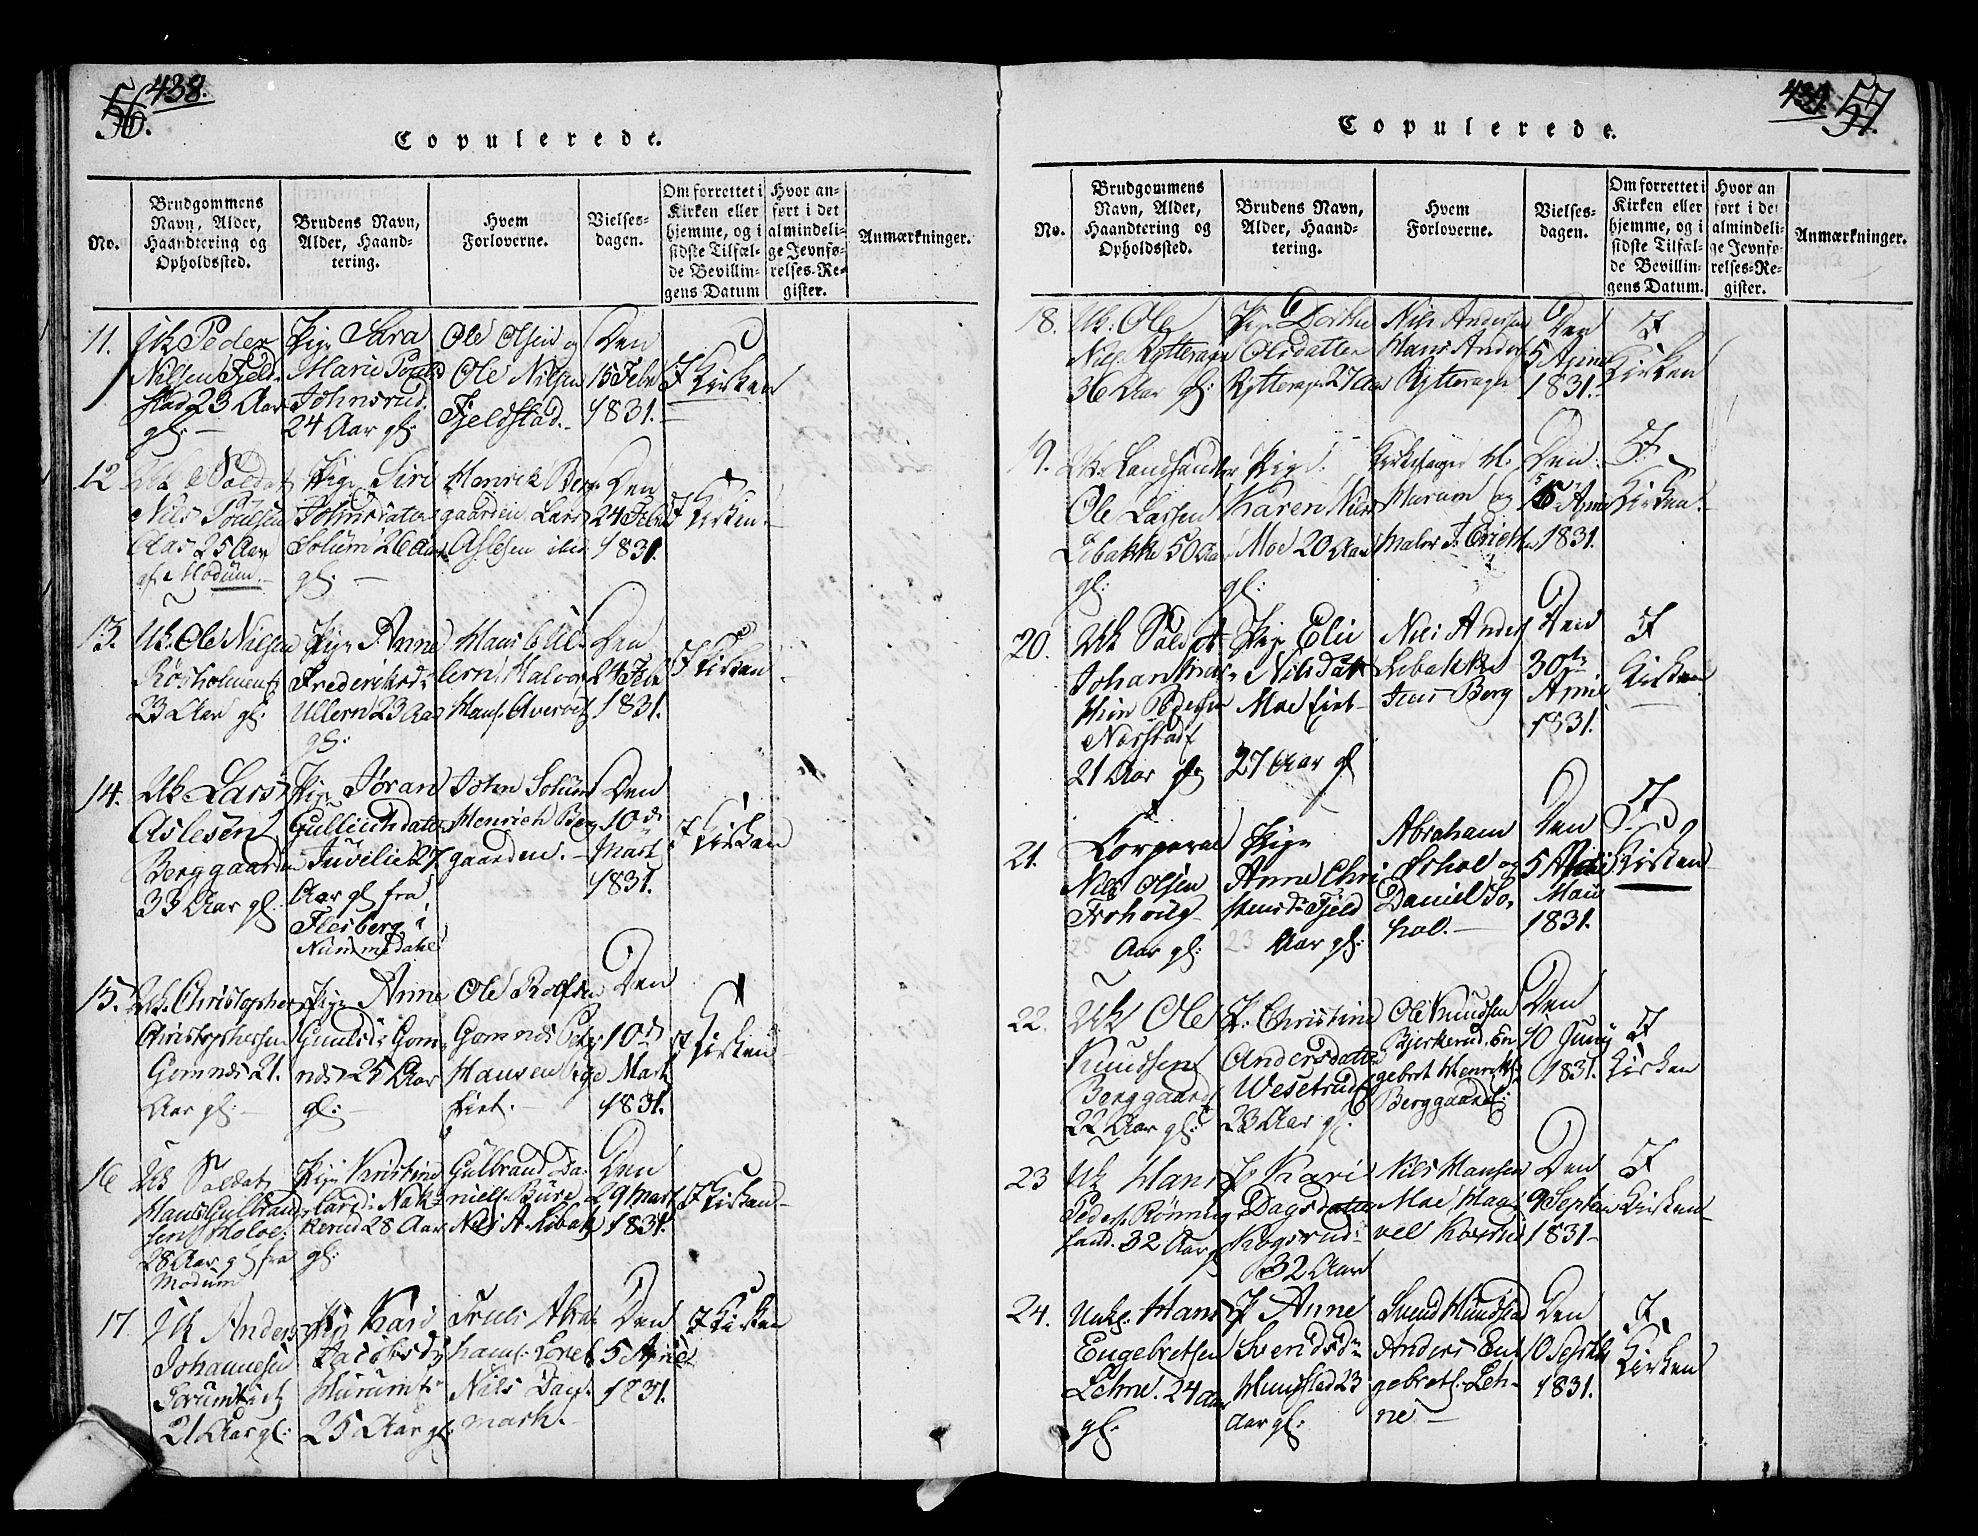 56. 438.
Copulerede.
No.
Brudgommens
Navn, Alder,
Haandtering og
Opholdssted.
Brudens Navn,
Alder, Haand-
tering.
Hvem
Forloverne.
Vielses-
dagen.
Om forrettet i
Kirken eller
hjemme, og i
sidste Tilfæl-
de Bevillin-
gens Datum
Hvor an-
ført i det
almindeli-
ge Jevnfø-
relses-Re-
gister.
Anmærkninger.
11.
Uk Peder
Nilsen Fjeld-
stad 23 Aar
gl:
Pige Sara
Marie Pouls
Johnsrud
24 Aar gl:
Ole Olsen og
Ole Nilsen
Fjeldstad.
Den
15 Febr
1831.
I Kirken
12
Uk Soldat
Nils Poulsen
Aas 25 Aar
af Modum.
Pige Siri
Johnsdater
Solum 26 Aar
gl:
Henrich Berg-
gaarden Lars
Aslesen ibid
Den
24 Febr
1831.
I Kirken.
13.
Uk. Ole Nilsen
Røsholmen
23 Aar gl:
Pige Anne
Frederiksd:
Ullern 23 Aar
gl:
Hans Ul-
lern Halvor
Hans:
Den
24 Febr
1831.
I Kirken
14.
Uk. Lars
Aslesen
Berggaarden
33 Aar gl.
Pige Jøran
Gullichsdater
Juvelie 27
Aar gl fra
Flesberg i
Nummedahl
John Solum
Henrich Berg
gaarden.
Den
10de
Mart
1831.
I Kirken
15.
Uk. Christopher
Christophersen
Gomnes 21.
Aar gl:
Pige Anne
Gunilsd: Gom-
nes 25 Aar
gl:
Ole Rolfsen
Gomnes
Hansen
Den
10de
Mart
1831.
I Kirken
16
Uk Soldat
Hans Gulbrand-
sen
28 Aar gl fra
Modum
Pige Kristine
Larsd: Nak-
kerud 28 Aar
gl:
Gulbrand Da-
niels: Bure
Nils A Libak
Den
29 Mart
1831.
I Kirken
17
Uk Anders
Johannesen
21 Aar gl:
Pige Kari
Jacobsd
Hurum
25 Aar gl
Truls Abra-
hams:
Nils Dan-
mark.
Den
5 April
1831.
I Kirken
439. 57.
Copulerede.
No.
Brudgommens
Navn, Alder,
Haandtering og
Opholdssted.
Brudens Navn,
Alder, Haand-
tering.
Hvem
Forloverne.
Vielses-
dagen.
Om forrettet i
Kirken eller
hjemme, og i
sidste Tilfæl-
de Bevillin-
gens Datum.
Hvor an
ført i det
almindeli-
ge Jevnfø-
relses-Re-
gister.
Anmærkninger.
18.
Uk: Ole
Nils: Rytterager
36 Aar gl:
Pige Dorthe
Olsdatter
Rytterager 27 Aar
Nils Andersen
Hans Anders
Rytterager
Den
5 April
1831.
I
Kirken
19.
Uk: Landhandler
Ole Larsen
Libakke 50 Aar
gl:
Pige
Karen Nils
Moe 20 Aar
gl:
Kirkesanger H:
Hurum og
Maler J. Erichs
Den
15 April
1831.
I
Kirken.
20.
Uk Soldat
Johan Fried-
Nørstad
21 Aar gl
Pige Elie
Nilsdat
Moe
27 Aar gl
Nils Anders
Libakke
Jens Berg
Den
30te
April
1831.
I
Kirken
21.
Corporal
Nils Olsen
Frohoug
25 Aar gl:
Pige
Anne Chri
stensd: Fjeld
23 Aar gl:
Abraham
Sørhol og
Daniel Sø-
hol.
Den
5
Maii
1831.
I
Kirken
22.
Uk Ole
Knudsen
Berggaard
22 Aar gl:
P: Christine
Andersdatter
Wesetrud
23 Aar gl.
Ole Knudsen
Bjerkerud, En
gebret Henriks
Berggaard:
Den
10 Junij
1831.
I
Kirken
23
Uk Hans
Peders: Rønning
sand. 32 Aar gl
P Kari
Dagsdatter
Kogsrud
32 Aar
Nils Hansen
Moe
Den
9 Septem
1831
I
Kirken
24.
Unk: Hans
Engebretsen
Lehne. 24 aar
gl:
P Anne
Svendsd:
Hungstad 23
Aar gl:
Svend Hungstad
Anders En-
gebrets: Leh-
ne
Den
10 Septbr
1831.
I
Kirken